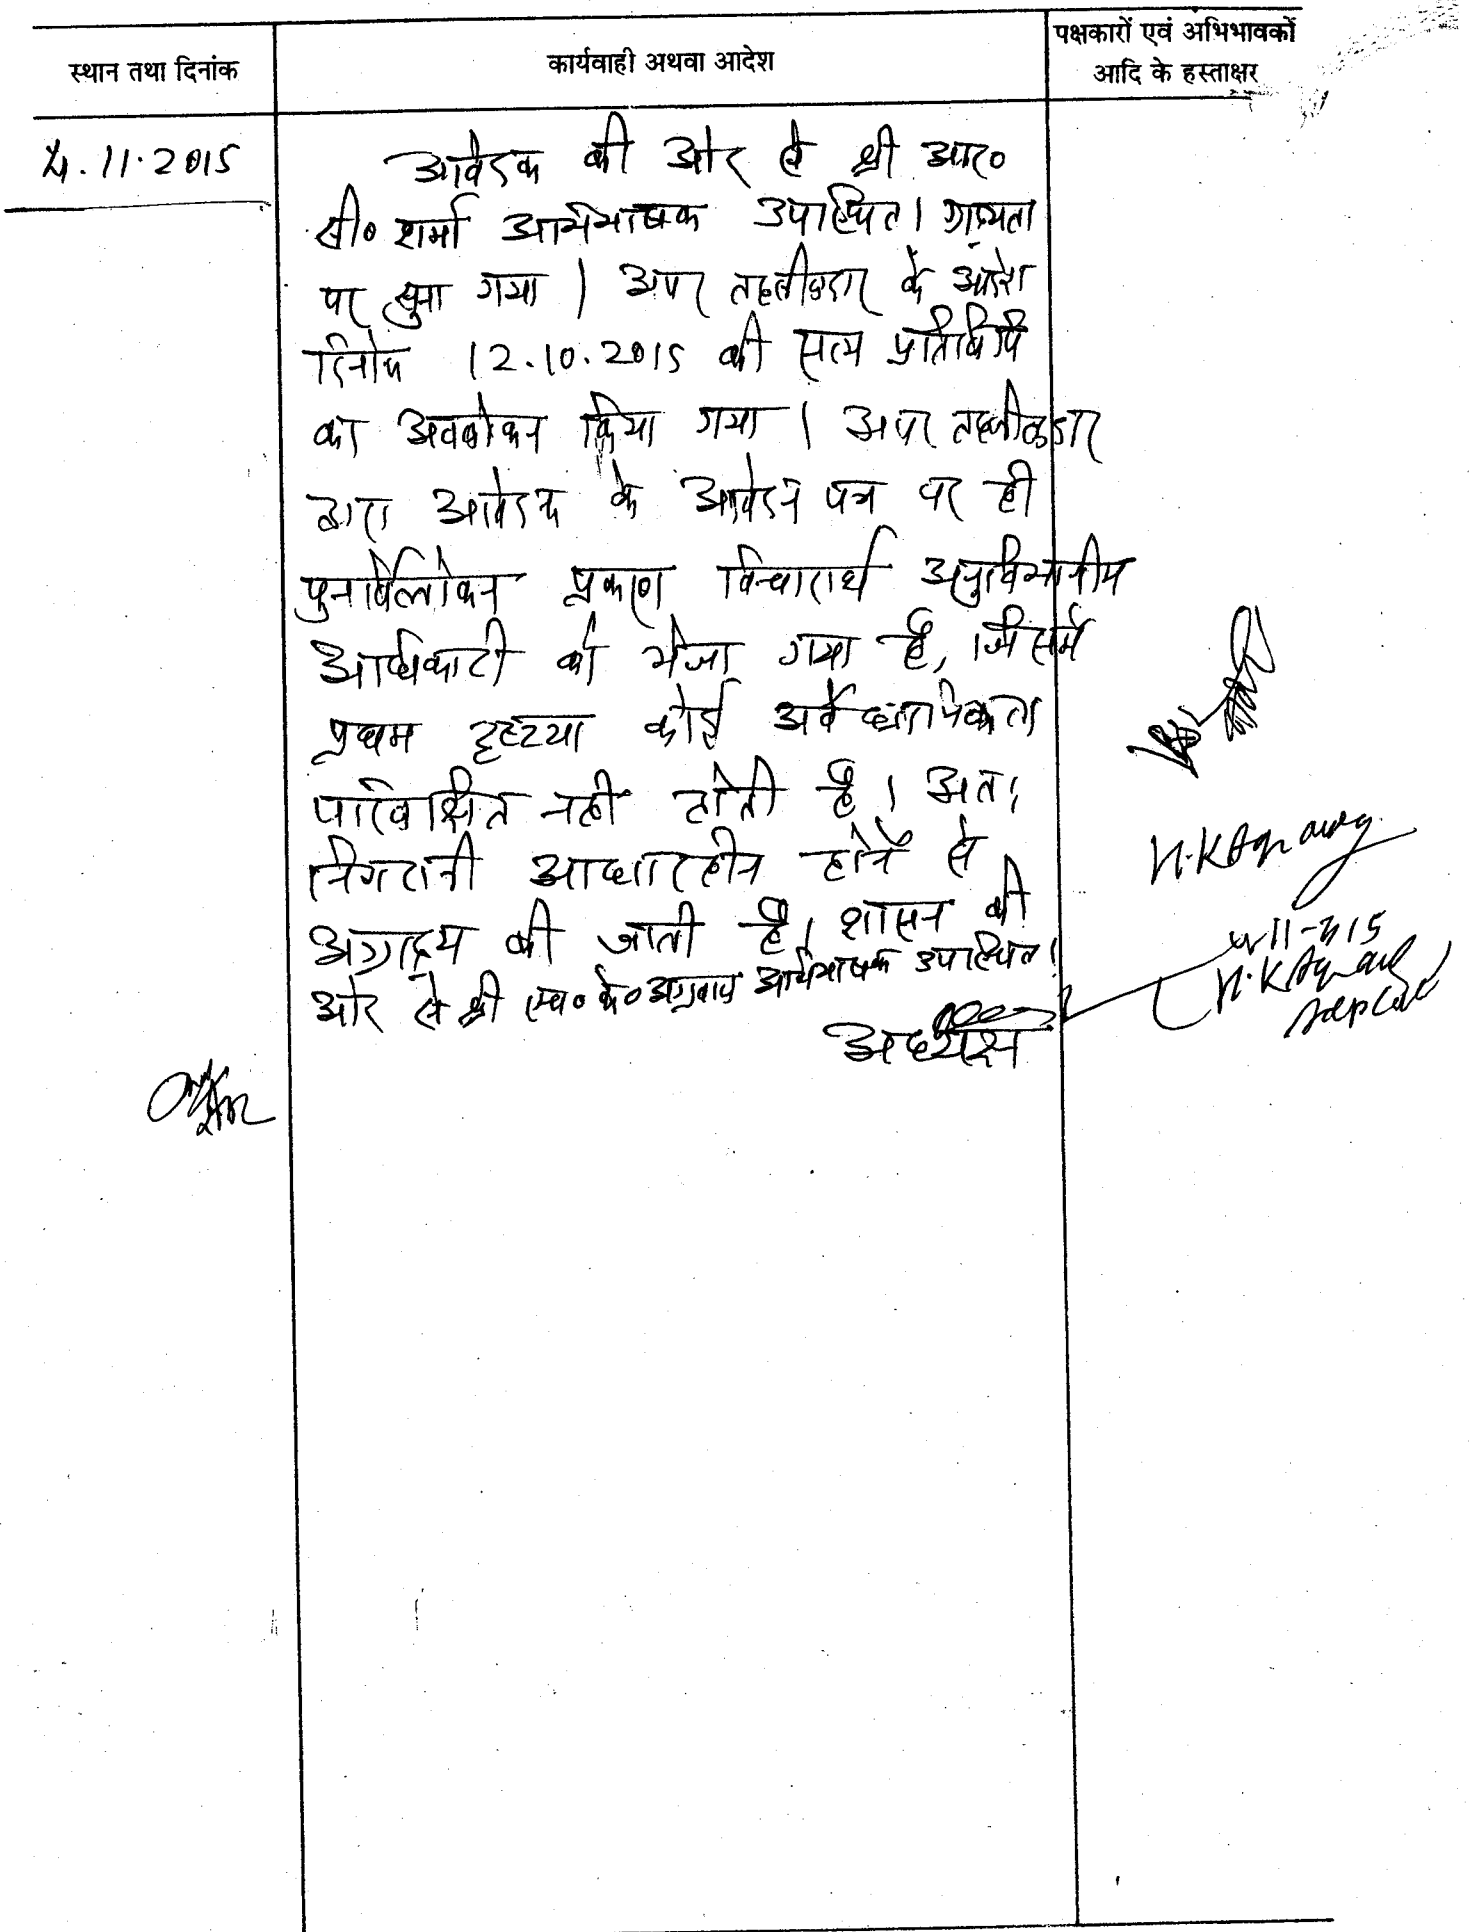 स्थान तथा दिनांक
कार्यवाही अथवा आदेश
पक्षकारों एवं अभिभावकों
आदि के हस्ताक्षर
4.11.2015
आवेदक की ओर से श्री आर०
सी० शर्मा अभिभाषक उपस्थित। ग्राह्यता
पर सुना गया। अपर तहसीलदार के आदेश
दिनांक 12.10.2015 की सत्य प्रतिलिपि
का अवलोकन किया गया। अपर तहसीलदार
द्वारा आवेदक के आवेदन पत्र पर ही
पुनर्विलोकन प्रकरण विचारार्थ अनुविभागीय
अधिकारी को भेजा गया है, जिसमें
प्रथम दृष्टया कोई अवैधानिकता
परिलक्षित नहीं होती है। अतः
निगरानी आधारहीन होने से
अग्राह्य की जाती है। शासन की
ओर से श्री एच० के० अग्रवाल अभिभाषक उपस्थित।
अध्यक्ष